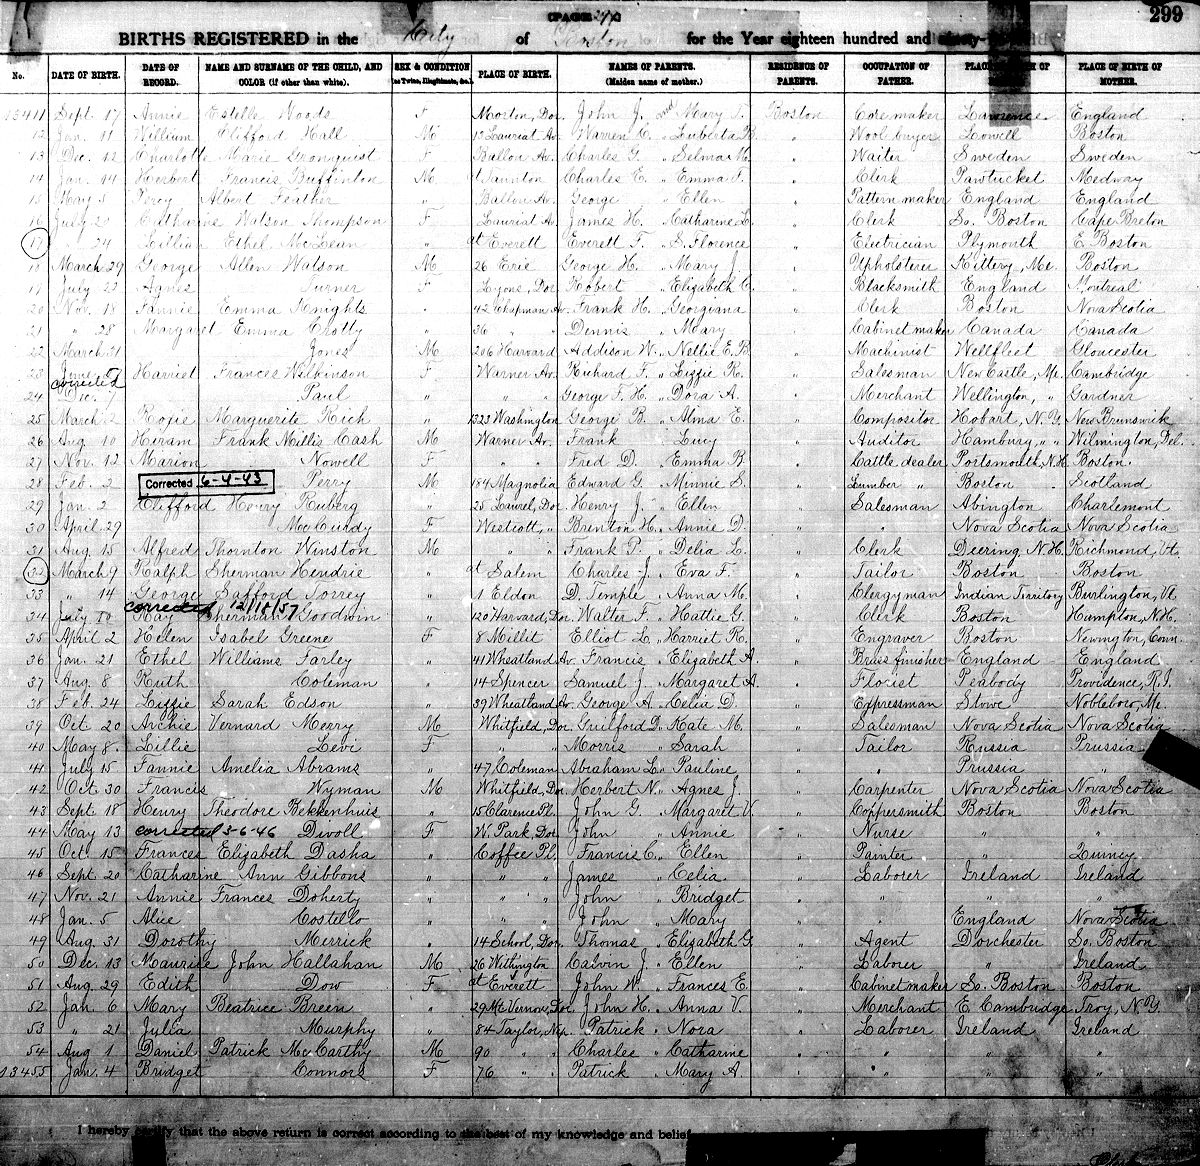 (PAGE 299)
299
BIRTHS REGISTERED in the City of Boston for the Year eighteen hundred and ninety-
No. DATE OF BIRTH. DATE OF RECORD. NAME AND SURNAME OF THE CHILD, AND COLOR (if other than white). SEX & CONDITION (as Twins, Illegitimate, &c.) PLACE OF BIRTH. NAMES OF PARENTS. (Maiden name of mother.) RESIDENCE OF PARENTS. OCCUPATION OF FATHER. PLACE OF BIRTH OF PLACE OF BIRTH OF MOTHER.
13411 Sept. 17 Annie Estelle Woods F Morton, Dor. John J. and Mary T. Boston Core maker Lawrence England
12 Jan. 11 William Clifford Hall M 17 Lauriat Av. Warren C. " Luberta B. " Wool buyer Lowell Boston
13 Dec. 12 Charlotte Marie Gronquist F Ballou Av. Charles G. " Selma M. " Waiter Sweden Sweden
14 Jan. 14 Herbert Francis Buffinton M Taunton Charles E. " Emma F. " Clerk Pawtucket Medway
15 May 5 Percy Albert Feather Ballou Av. George " Ellen " Pattern maker England England
16 July 21 Catharine Watson Thompson F Lauriat Av. James H. " Catharine L. " Clerk So. Boston Cape Breton
17 " 24 Lillian Ethel McLean " at Everett Everett F. " S. Florence " Electrician Plymouth E. Boston
18 March 29 George Allen Watson M 26 Erie George H. " Mary J. " Upholsterer Kittery, Me. Boston
19 July 22 Agnes Turner F Lyons, Dor. Robert " Elizabeth C. " Blacksmith England Montreal
20 Nov. 18 Fannie Emma Knights " 42 Chapman Av. Frank H. " Georgiana " Clerk Boston Nova Scotia
21 " 28 Margaret Emma Crotty " 36 " " Dennis " Mary " Cabinet maker Canada Canada
22 March 31 Jones M 206 Harvard Addison W. " Nellie E. B. " Machinist Wellfleet Gloucester
23 June 7 Harriet Frances Wilkinson F Warner Av. Richard F. " Lizzie R. " Salesman New Castle, Me. Cambridge
corrected
24 Dec. 7 Paul " " " George F. H. " Dora A. " Merchant Wellington, " Gardner
25 March 2 Rosie Marguerite Rich " 1323 Washington George B. " Alma E. " Compositor Hobart, N.Y. New Brunswick
26 Aug. 10 Hiram Frank Millis Cash M Warner Av. Frank " Lucy " Auditor Hamburg, " " Wilmington, Del.
27 Nov. 12 Marion Nowell F " " Fred D. " Emma B. " Cattle dealer Portsmouth, N.H. Boston.
28 Feb. 2 Corrected 6-4-43 Perry M 184 Magnolia Edward G. " Minnie S. " Lumber " Boston Scotland
29 Jan. 2 Clifford Henry Ruberg " 25 Laurel, Dor. Henry J. " Ellen " Salesman Abington Charlemont
30 April 29 McCurdy F Westcott, " Banton H. " Annie D. " " Nova Scotia Nova Scotia
31 Aug. 15 Alfred Thornton Winston M " " Frank P. " Delia L. " Clerk Deering N.H. Richmond, Vt.
32 March 9 Ralph Sherman Hendrie " at Salem Charles J. " Eva F. " Tailor Boston Boston
33 " 14 George Safford Torrey " 1 Eldon D. Temple " Anna M. " Clergyman Indian Territory Burlington, Vt.
corrected 12/18/57
34 July 10 Ray Sherman Goodwin " 120 Harvard, Dor. Walter F. " Hattie G. " Clerk Boston Hampton, N.H.
35 April 2 Helen Isabel Greene F 8 Millet Elliot L. " Harriet R. " Engraver Boston Newington, Conn.
36 Jan. 21 Ethel Williams Farley " 41 Wheatland Av. Francis " Elizabeth A. " Brass finisher England England
37 Aug. 8 Ruth Coleman " 14 Spencer Samuel J. " Margaret A. " Florist Peabody Providence, R.I.
38 Feb. 24 Lizzie Sarah Edson " 39 Wheatland Av. George A. " Celia D. " Expressman Stowe Nobleboro, Me.
39 Oct. 20 Archie Vernard Merry M Whitfield, Dor. Guilford D. " Kate M. " Salesman Nova Scotia Nova Scotia
40 May 8. Lillie Levi F " " Morris " Sarah " Tailor Russia Prussia
41 July 15. Fannie Amelia Abrams " 47 Coleman Abraham L. " Pauline " " Prussia "
42 Oct. 30 Francis Wyman M Whitfield, Dor. Herbert N. " Agnes J. " Carpenter Nova Scotia Nova Scotia
43 Sept. 18 Henry Theodore Bekkenhuis " 15 Clarence Pl. John G. " Margaret V. " Coppersmith Boston Boston
44 May 13 corrected 5-6-46 Divoll F W. Park, Dor. John " Annie " Nurse " "
45 Oct. 15 Frances Elizabeth Dasha " Coffee Pl. Francis C. " Ellen " Painter " Quincy
46 Sept. 20 Catharine Ann Gibbons " " " James " Celia " Laborer Ireland Ireland
47 Nov. 21 Annie Frances Doherty " " " John " Bridget " " " "
48 Jan. 5 Alice Costello " " " John " Mary " " England Nova Scotia
49 Aug. 31 Dorothy Merrick " 14 School, Dor. Thomas " Elizabeth G. " Agent Dorchester So. Boston
50 Dec. 13 Maurice John Hallahan M 26 Withington Calvin J. " Ellen " Laborer " Ireland
51 Aug. 29 Edith Dow F at Everett John W. " Frances E. " Cabinet maker So. Boston Boston
52 Jan. 6 Mary Beatrice Breen " 29 Mt Vernon, Dor. John H. " Anna V. " Merchant E. Cambridge Troy, N.Y.
53 " 21 Julia Murphy " 84 Taylor, Nep. Patrick " Nora " Laborer Ireland Ireland
54 Aug. 1 Daniel Patrick McCarthy M 90 " " Charles " Catharine " " " "
13455 Jan. 4 Bridget Connors F 76 " " Patrick " Mary A. " " " "
I hereby certify that the above return is correct according to the best of my knowledge and belief.